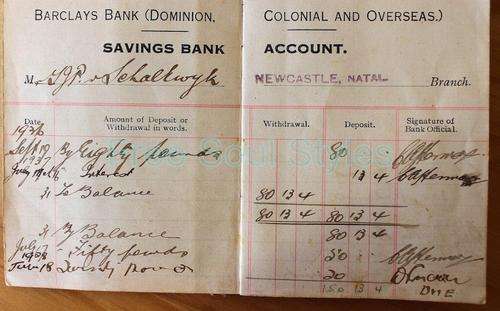 BARCLAYS BANK (DOMINION, COLONIAL AND OVERSEAS.)
SAVINGS BANK ACCOUNT.
M v Schalkwyk NEWCASTLE, NATAL Branch.
Date. Amount of Deposit or Withdrawal in words. Withdrawal. Deposit. Signature of Bank Official.
1936
Sept 19 By Eighty pounds 80
1937
Interest 13 4
31 To Balance 80 13 4
80 13 4 80 13 4
31 By Balance 80 13 4
July 7 Fifty pounds 50
1938
June 18 20
150 13 4